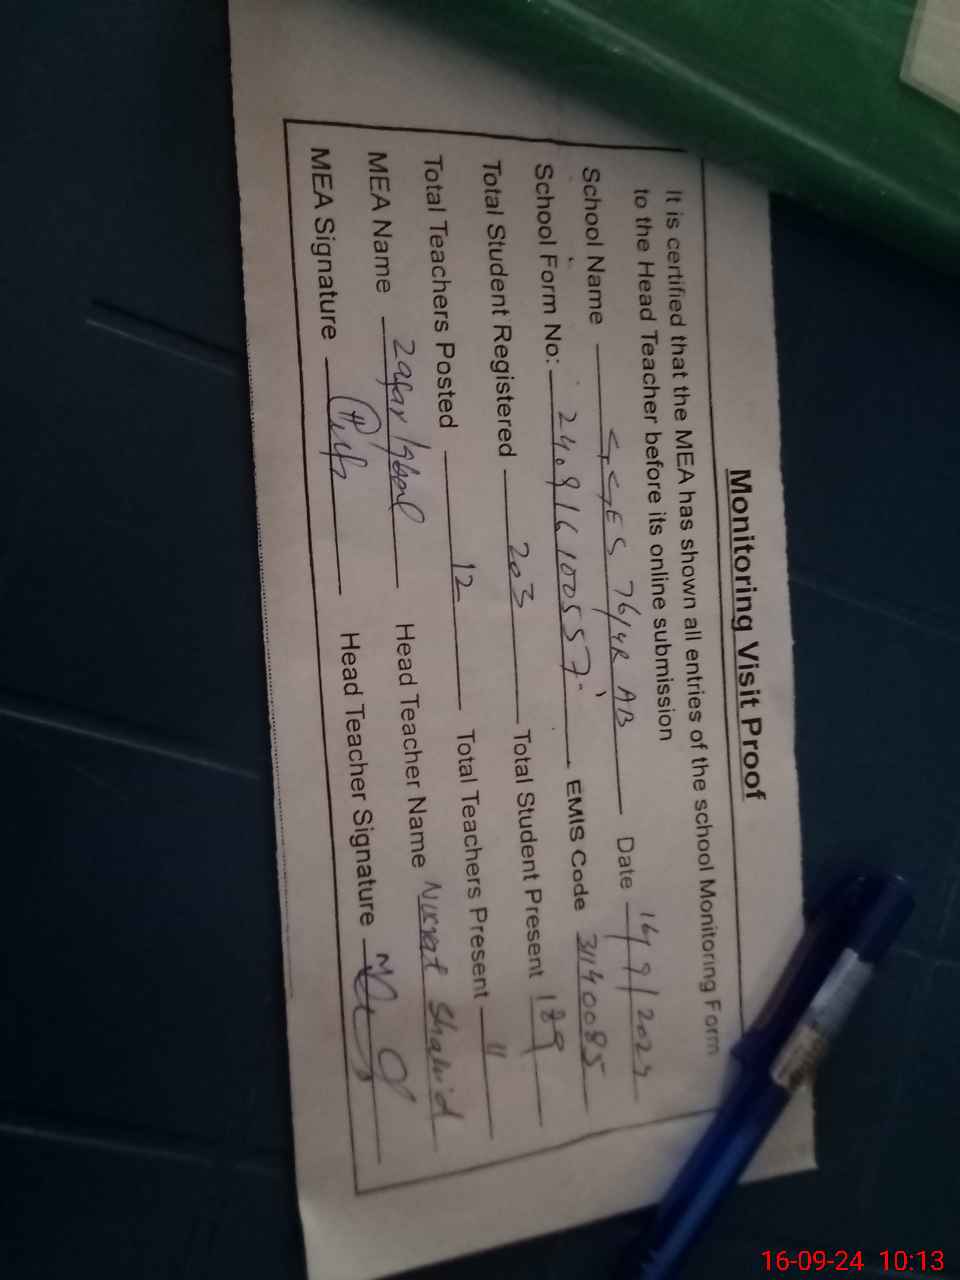 Monitoring Visit Proof
It is certified that the MEA has shown all entries of the school Monitoring Form
to the Head Teacher before its online submission
School Name GGES 76/4R AB Date 16/9/2024
School Form No: 24.916100557 EMIS Code 31140085
Total Student Registered 203 Total Student Present 189
Total Teachers Posted 12 Total Teachers Present 11
MEA Name Zafar Iqbal Head Teacher Name Nusrat Shahid
MEA Signature Head Teacher Signature
16-09-24 10:13